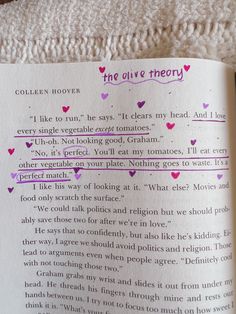 the olive theory
COLLEEN HOOVER
"I like to run," he says. "It clears my head. And I love
every single vegetable except tomatoes."
"Uh-oh. Not looking good, Graham."
"No, it's perfect. You'll eat my tomatoes, I'll eat every
other vegetable on your plate. Nothing goes to waste. It's a
perfect match."
I like his way of looking at it. "What else? Movies and
food only scratch the surface."
"We could talk politics and religion but we should prob-
ably save those two for after we're in love."
He says that so confidently, but also like he's kidding. Ei-
ther way, I agree we should avoid politics and religion. Those
lead to arguments even when people agree. "Definitely cool
with not touching those two."
Graham grabs my wrist and slides it out from under my
head. He threads his fingers through mine and rests our
hands between us. I try not to focus too much on how sweet I
think it is.